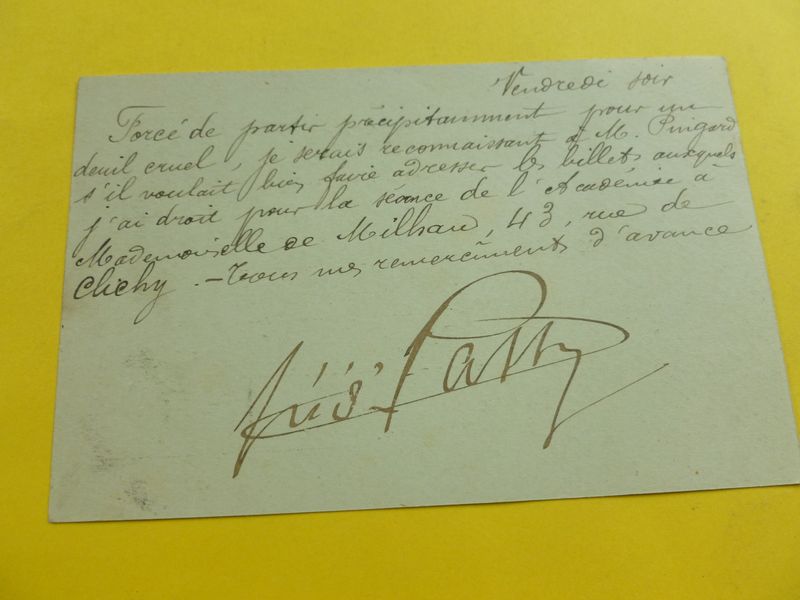 Vendredi soir
Forcé de partir précipitamment pour un
deuil cruel, je serais reconnaissant à M. Pingard
s'il voulait bien faire adresser les billets auxquels
j'ai droit pour la séance de l'Académie à
Mademoiselle de Milhau, 43, rue de
Clichy. - Tous mes remercîments d'avance